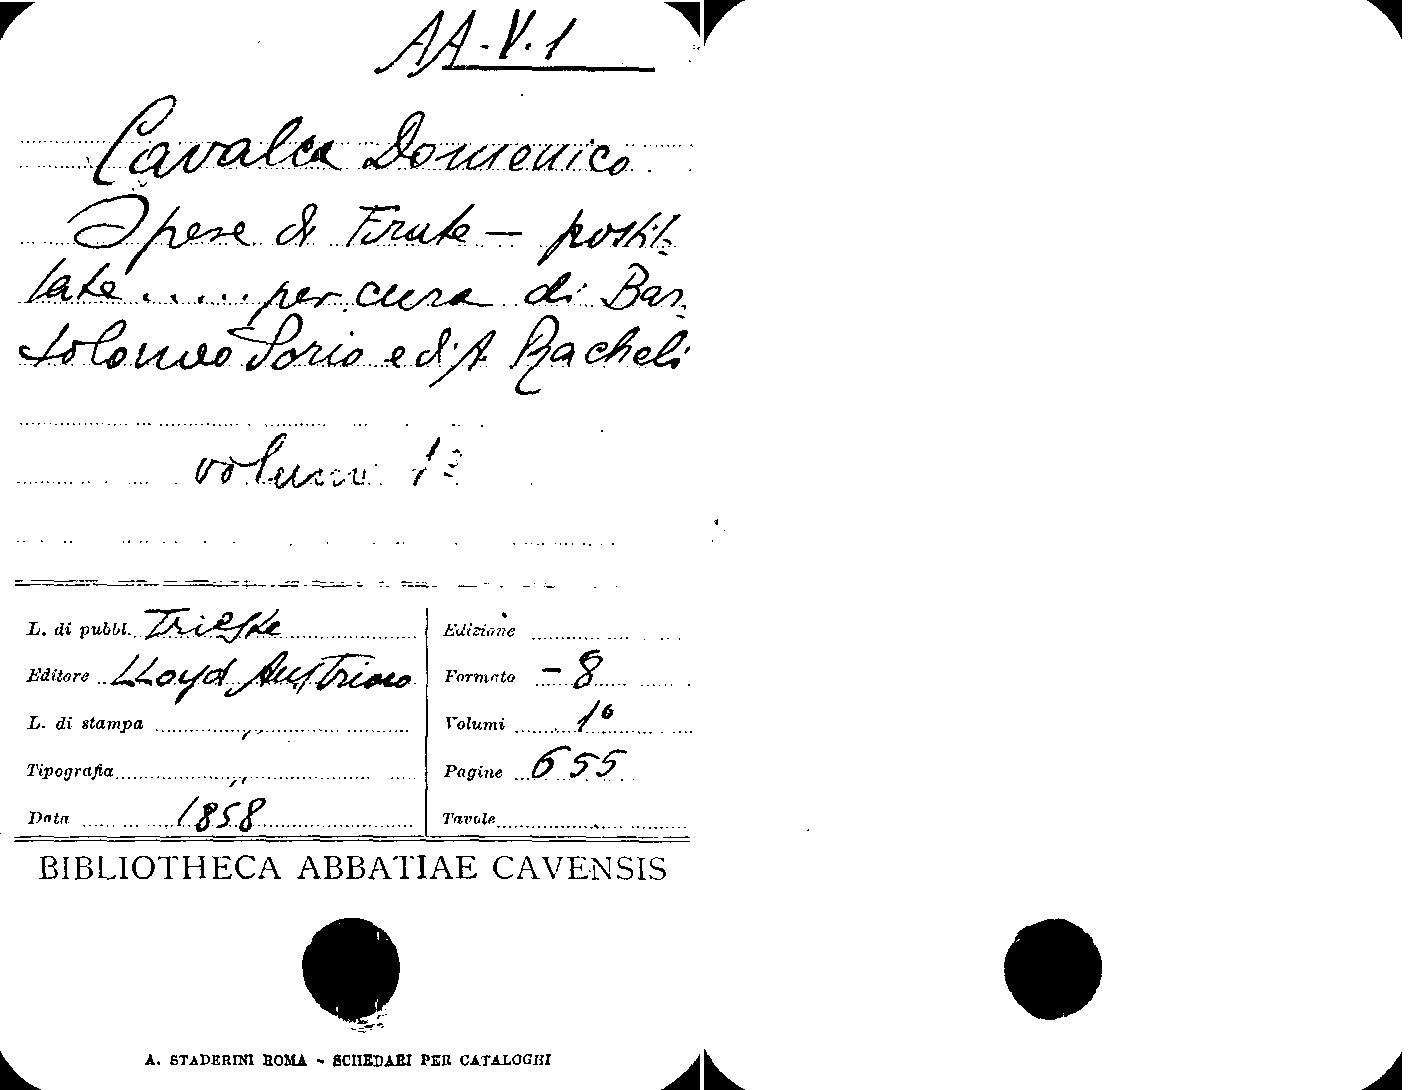 AA-V-1
Cavalca Domenico
Opere di Frate — postil-
late ..... per cura di Bar-
tolomeo Sorio ed A. Racheli
volume 1º
L. di pubbl. Trieste
Editore LLoyd Austriaco
L. di stampa "
Tipografia "
Data 1858
Edizione
Formato - 8
Volumi 1º
Pagine 655
Tavole
BIBLIOTHECA ABBATIAE CAVENSIS
A. STADERINI ROMA - SCHEDARI PER CATALOGHI